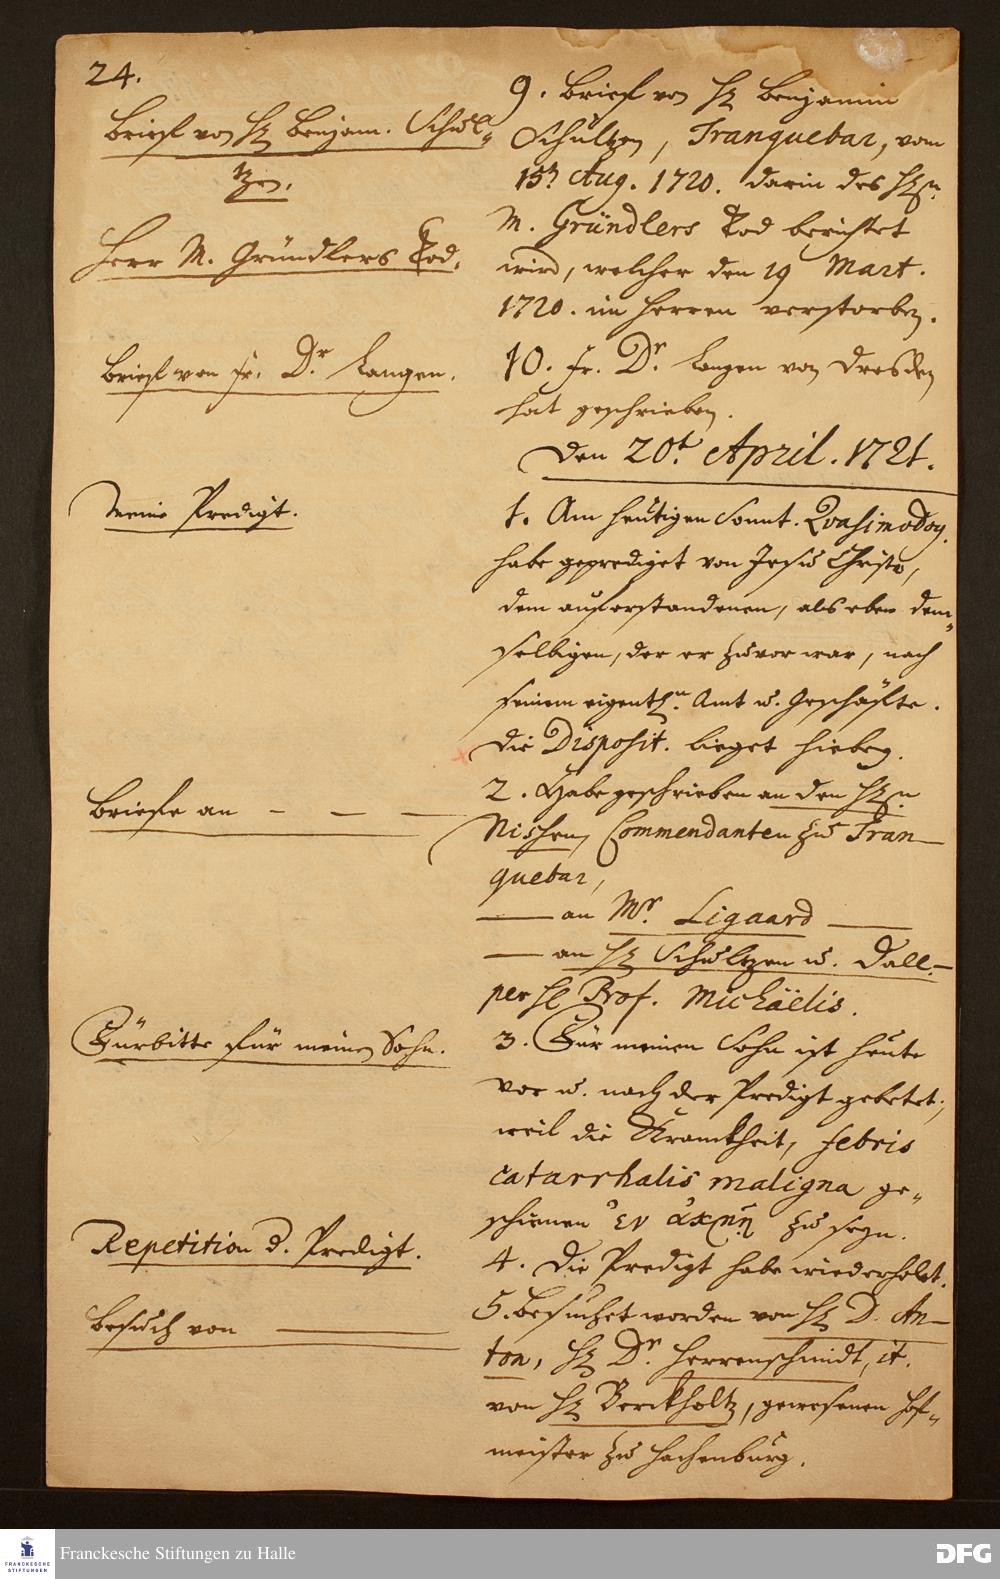 24.
Brief von H Benjam. Schul-
tzen.
Herr M. Gründlers Tod.
Brief von Fr. Dr. Langen.
Meine Predigt.
Briefe an — — —
Fürbitte für meinen Sohn.
Repetition d. Predigt.
Besuch von
9. Brief von H Benjamin
Schultzen, Tranquebar, vom
15ᵗ Aug. 1720. darin des Hn.
M. Gründlers Tod berichtet
wird, welcher den 19 Mart.
1720. im Herren verstorben.
10. Fr. Dr. Langen von Dresden
hat geschrieben.
Den 20t. April. 1721.
1. Am heutigen Sonnt. Quasimodog.
habe geprediget von Jesu Christo,
dem auferstandenen, als eben dem-
selbigen, der er zuvor war, nach
seinem eigenthn. Amt u. Geschäfte.
Die Disposit. lieget hiebey.
2. Habe geschrieben an den Hn
Nissen, Commendanten zu Tran-
quebar,
— an Mr. Ligaard —
— an H Schultzen u. Dall.
per H Prof. Michäelis.
3. Für meinen Sohn ist heute
vor u. nach der Predigt gebetet;
weil die Kranckheit, febris
catarrhalis maligna ge-
schienen ἐν ἀκμῇ zu seyn.
4. Die Predigt habe wiederholet.
5. Besuchet worden von H D. An-
ton, H Dr. Herrenschmidt, it.
von H Berckholtz, gewesenen Hof-
meister zu Hachenburg.
Franckesche Stiftungen zu Halle
FRANCKESCHE
STIFTUNGEN
DFG